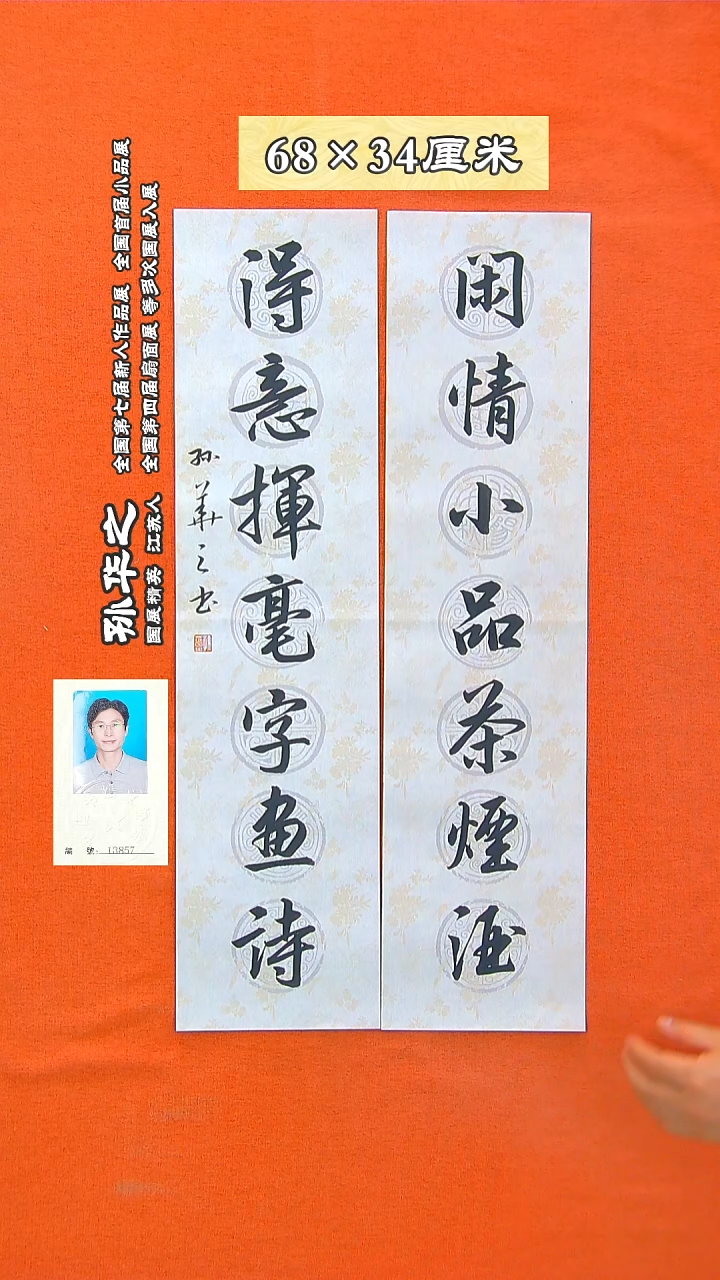 68×34厘米
闲情小品茶煙酒
得意揮毫字画詩
孙華之书
全国第七届新人作品展 全国首届小品展
全国第四届扇面展 等多次国展入展
孙华之
国展精英 江苏人
編 號: 13857